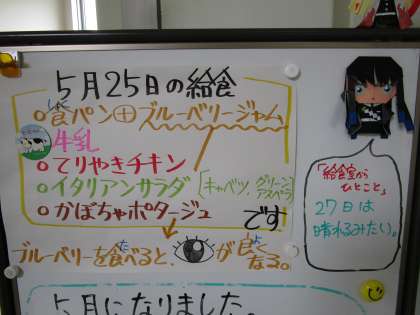 5月25日の給食
○食パン⊕ブルーベリージャム
しょく
牛乳
○てりやきチキン
○イタリアンサラダ「キャベツ、グリーンアスパラ」
○かぼちゃポタージュ
です
ブルーベリーを食べると、
た
が良く
よ
なる。
「給食室からひとこと」
27日は
晴れるみたい。
5月になりました。